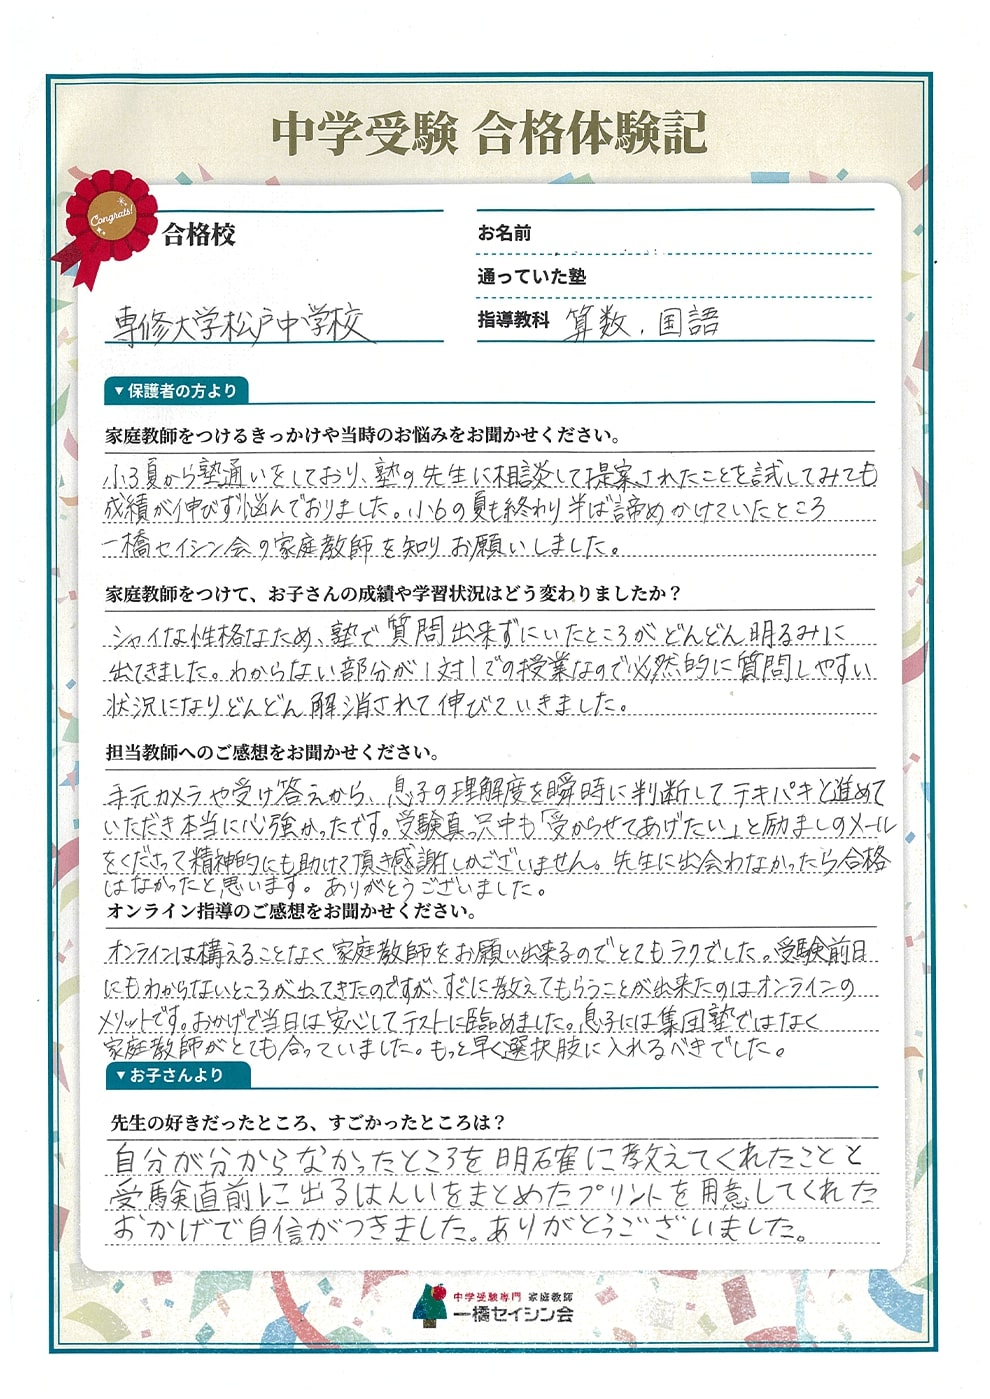 中学受験 合格体験記
Congrats!
合格校
専修大学松戸中学校
お名前
通っていた塾
指導教科 算数、国語
▼保護者の方より
家庭教師をつけるきっかけや当時のお悩みをお聞かせください。
小3夏から塾通いをしており、塾の先生に相談して提案されたことを試してみても
成績が伸びず悩んでおりました。小6の夏も終わり半ば諦めかけていたところ
一橋セイシン会の家庭教師を知りお願いしました。
家庭教師をつけて、お子さんの成績や学習状況はどう変わりましたか？
シャイな性格なため、塾で質問出来ずにいたところがどんどん明るみに
出てきました。わからない部分が1対1での授業なので必然的に質問しやすい
状況になりどんどん解消されて伸びていきました。
担当教師へのご感想をお聞かせください。
手元カメラや受け答えから、息子の理解度を瞬時に判断してテキパキと進めて
いただき本当に心強かったです。受験真っ只中も「受からせてあげたい」と励ましのメール
をくださって精神的にも助けて頂き感謝しかございません。先生に出会わなかったら合格
はなかったと思います。ありがとうございました。
オンライン指導のご感想をお聞かせください。
オンラインは構えることなく家庭教師をお願い出来るのでとてもラクでした。受験前日
にもわからないところが出てきたのですが、すぐに教えてもらうことが出来たのはオンラインの
メリットです。おかげで当日は安心してテストに臨めました。息子には集団塾ではなく
家庭教師がとても合っていました。もっと早く選択肢に入れるべきでした。
▼お子さんより
先生の好きだったところ、すごかったところは？
自分が分からなかったところを明確に教えてくれたことと
受験直前に出るはんいをまとめたプリントを用意してくれた
おかげで自信がつきました。ありがとうございました。
中学受験専門 家庭教師
一橋セイシン会